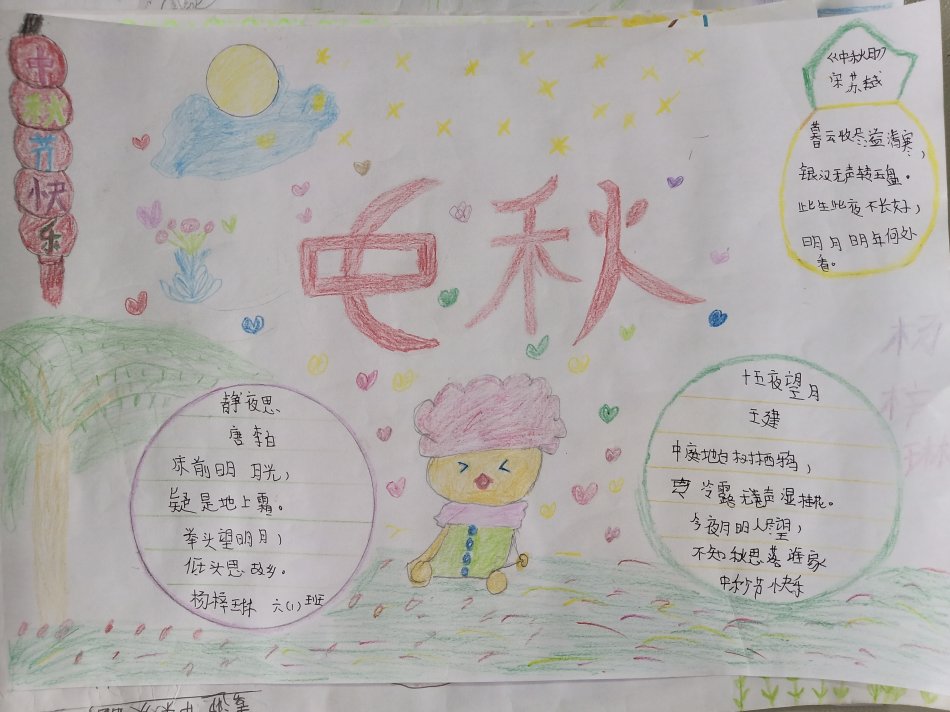 中秋节快乐
中秋
《中秋月》
宋苏轼
暮云收尽溢清寒，
银汉无声转玉盘。
此生此夜不长好，
明月明年何处
看。
静夜思
唐李白
床前明月光，
疑是地上霜。
举头望明月，
低头思故乡。
杨梓琳 六(1)班
十五夜望月
王建
中庭地白树栖鸦，
冷露无声湿桂花。
今夜月明人尽望，
不知秋思落谁家
中秋节快乐